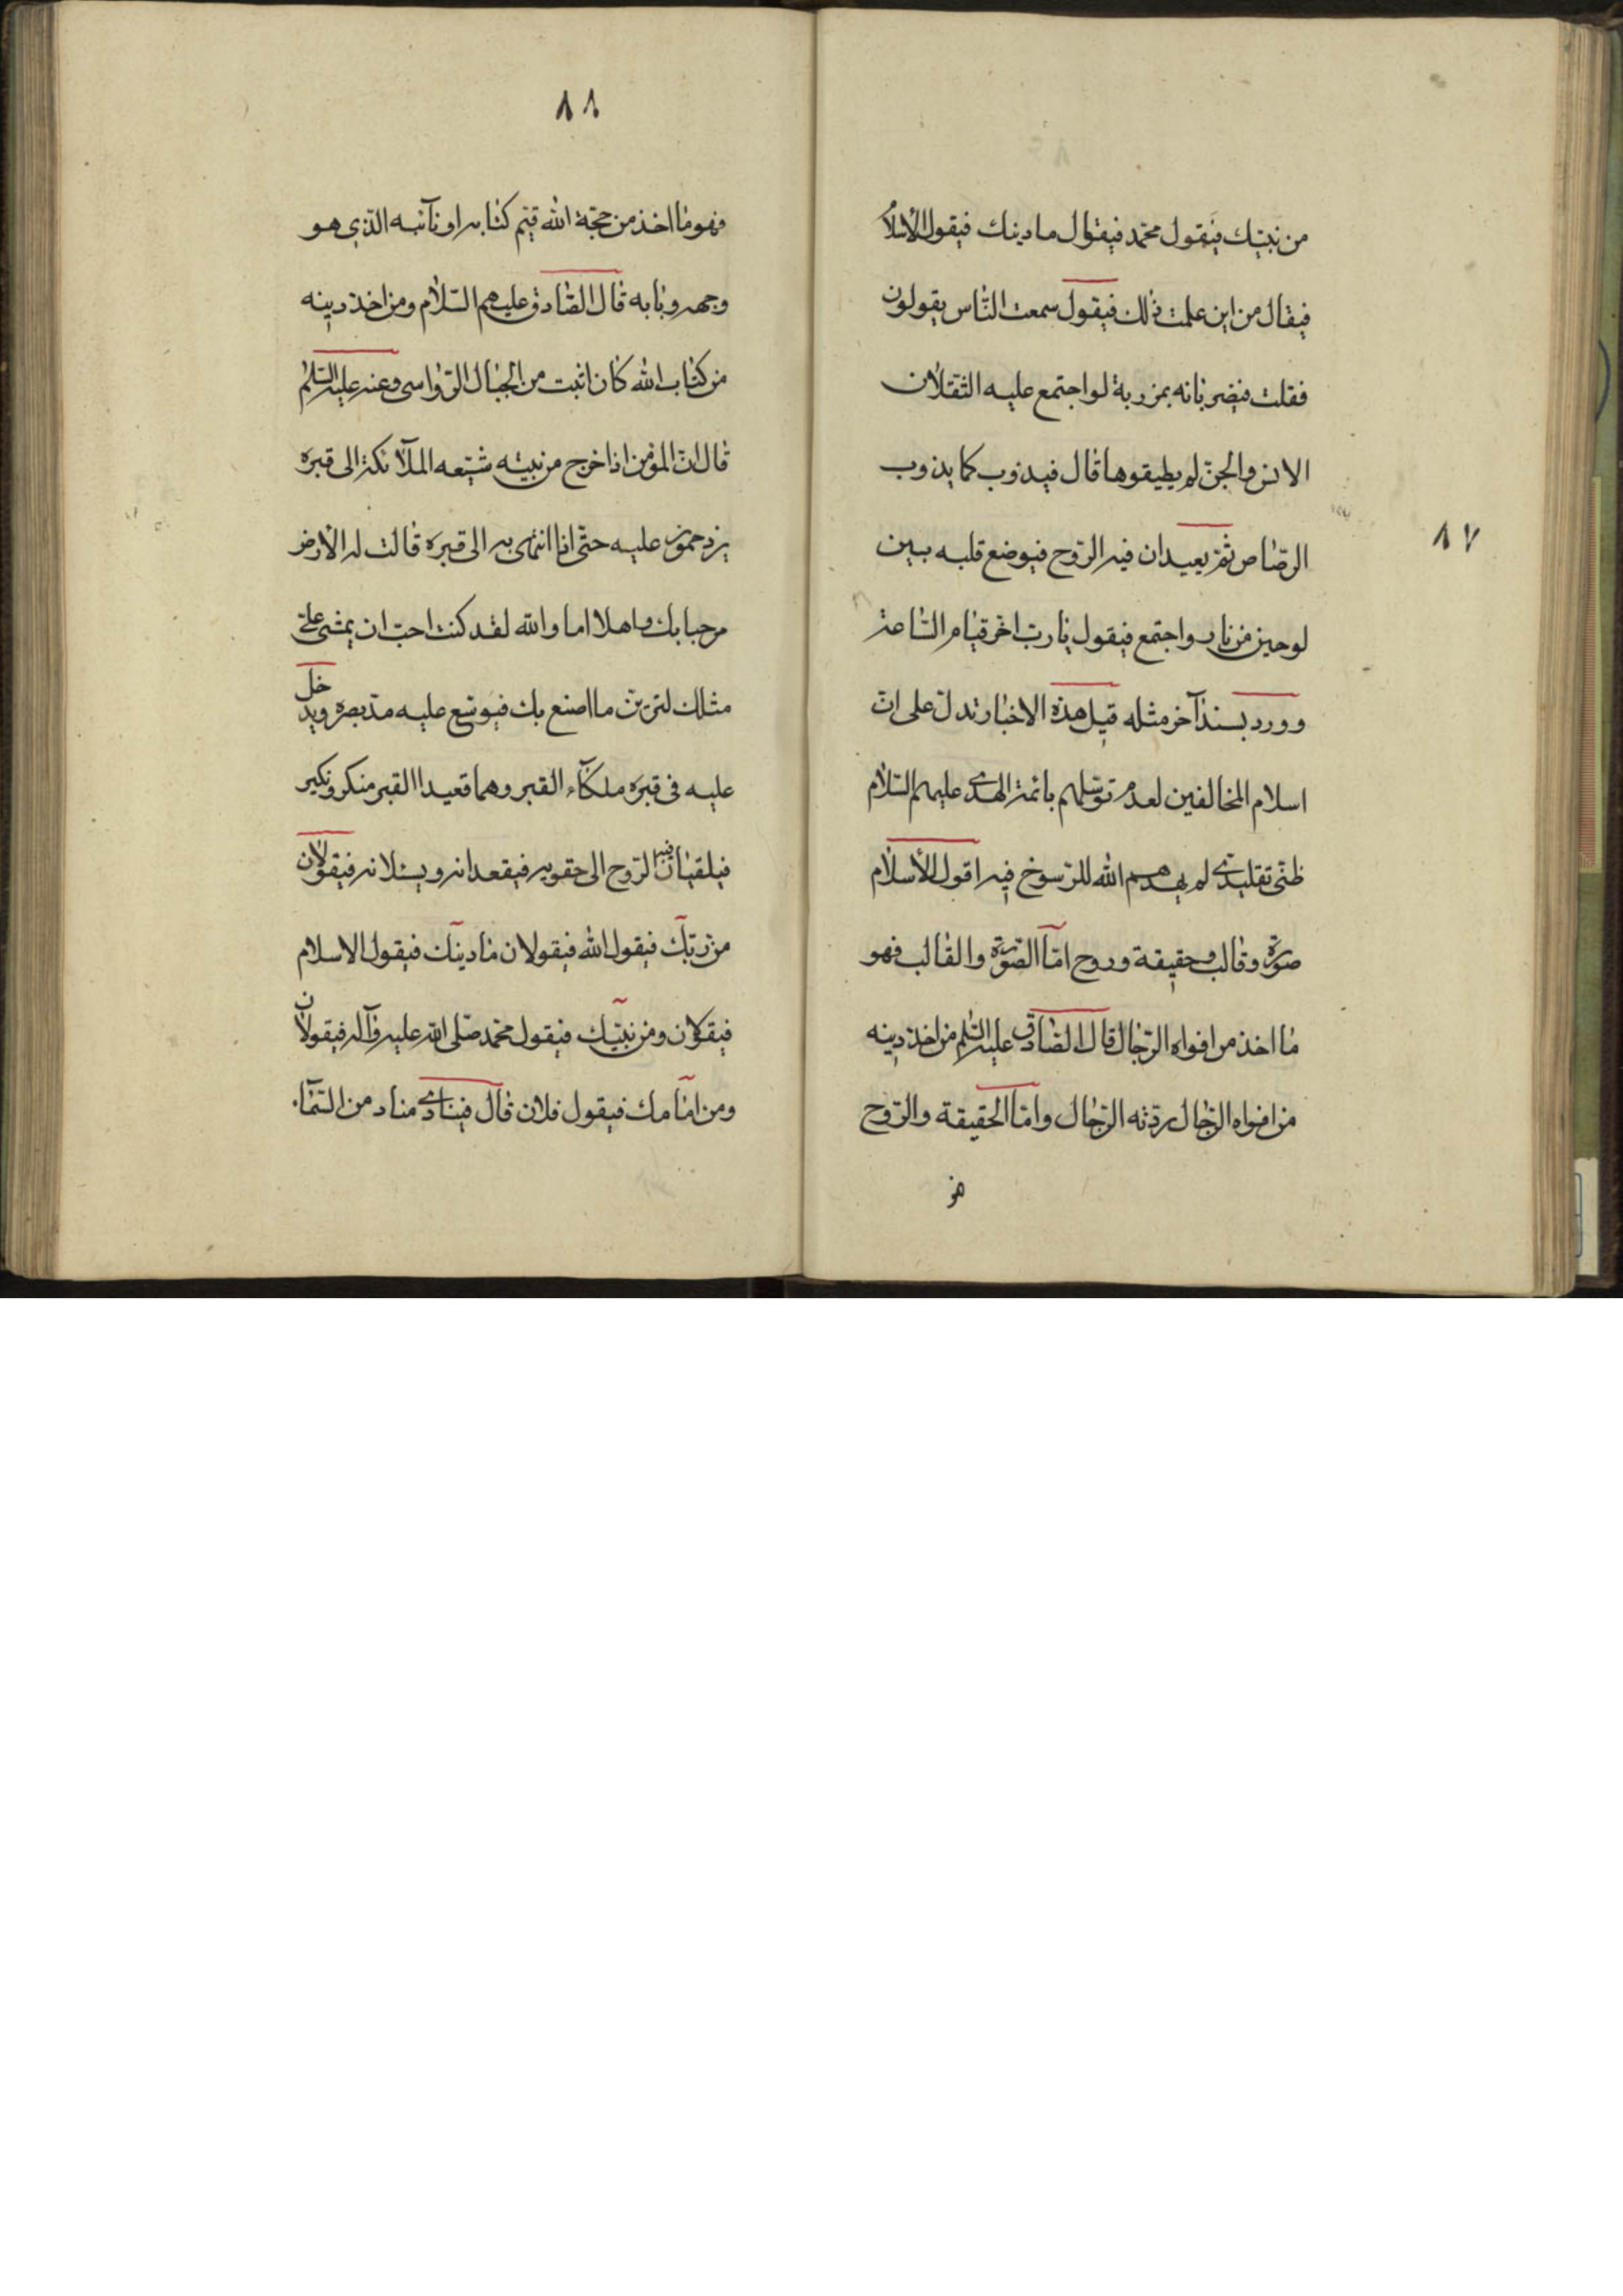 من نبيّك فيقول محمّد فيقال ما دينك فيقول الأسلام
فيقال من اين علمت ذلك فيقول سمعت النّاس يقولون
فقلت فيضربانه بمرزبة لو اجتمع عليه الثقلان
الانس والجنّ لم يطيقوها قال فيذوب كما يذوب
الرّصاص ثمّ يعيدان فيه الرّوح فيوضع قلبه بين
٨٧
لوحين من نار واجتمع فيقول يا ربّ اخّر قيام السّاعة
وورد بسند آخر مثله قيل هذه الاخبار تدلّ على انّ
اسلام المخالفين لعدم توسّلهم بائمة الهدى عليهم السّلام
ظنّى تقليدى لم يهدهم الله للرّسوخ فيه اقول الأسلام
صورة وقالب وحقيقة وروح امّا الصّورة والقالب فهو
ما اخذ من افواه الرّجال قال الصّادق عليه السّلم من اخذ دينه
من افواه الرّجال ردّته الرّجال وامّا الحقيقة والرّوح
فهو
٨٨
فهو ما اخذ من حجّة الله قيّم كتابه او نآئبه الّذي هو
وجهه وبابه قال الصّادق عليهم السّلام ومن اخذ دينه
من كتاب الله كان اثبت من الجبال الرّواسى وعنه عليه السّلم
قال انّ المؤمن اذا خرج من بيته شيّعه الملآئكة الى قبره
يزدحمون عليه حتّى اذا انتهى به الى قبره قالت له الأرض
مرحبا بك واهلا اما والله لقد كنت احبّ ان يمشى علىّ
مثلك لترينّ ما اصنع بك فيوسّع عليه مدّ بصره ويدخل
عليه فى قبره ملكآء القبر وهما قعيدا القبر منكر ونكير
فيلقيان فيه الرّوح الى حقويه فيقعدانه ويسئلانه فيقولان
من ربّك فيقول الله فيقولان ما دينك فيقول الاسلام
فيقولان ومن نبيّك فيقول محمّد صلّى الله عليه وآله فيقولان
ومن امامك فيقول فلان قال فينادى مناد من السّمآء